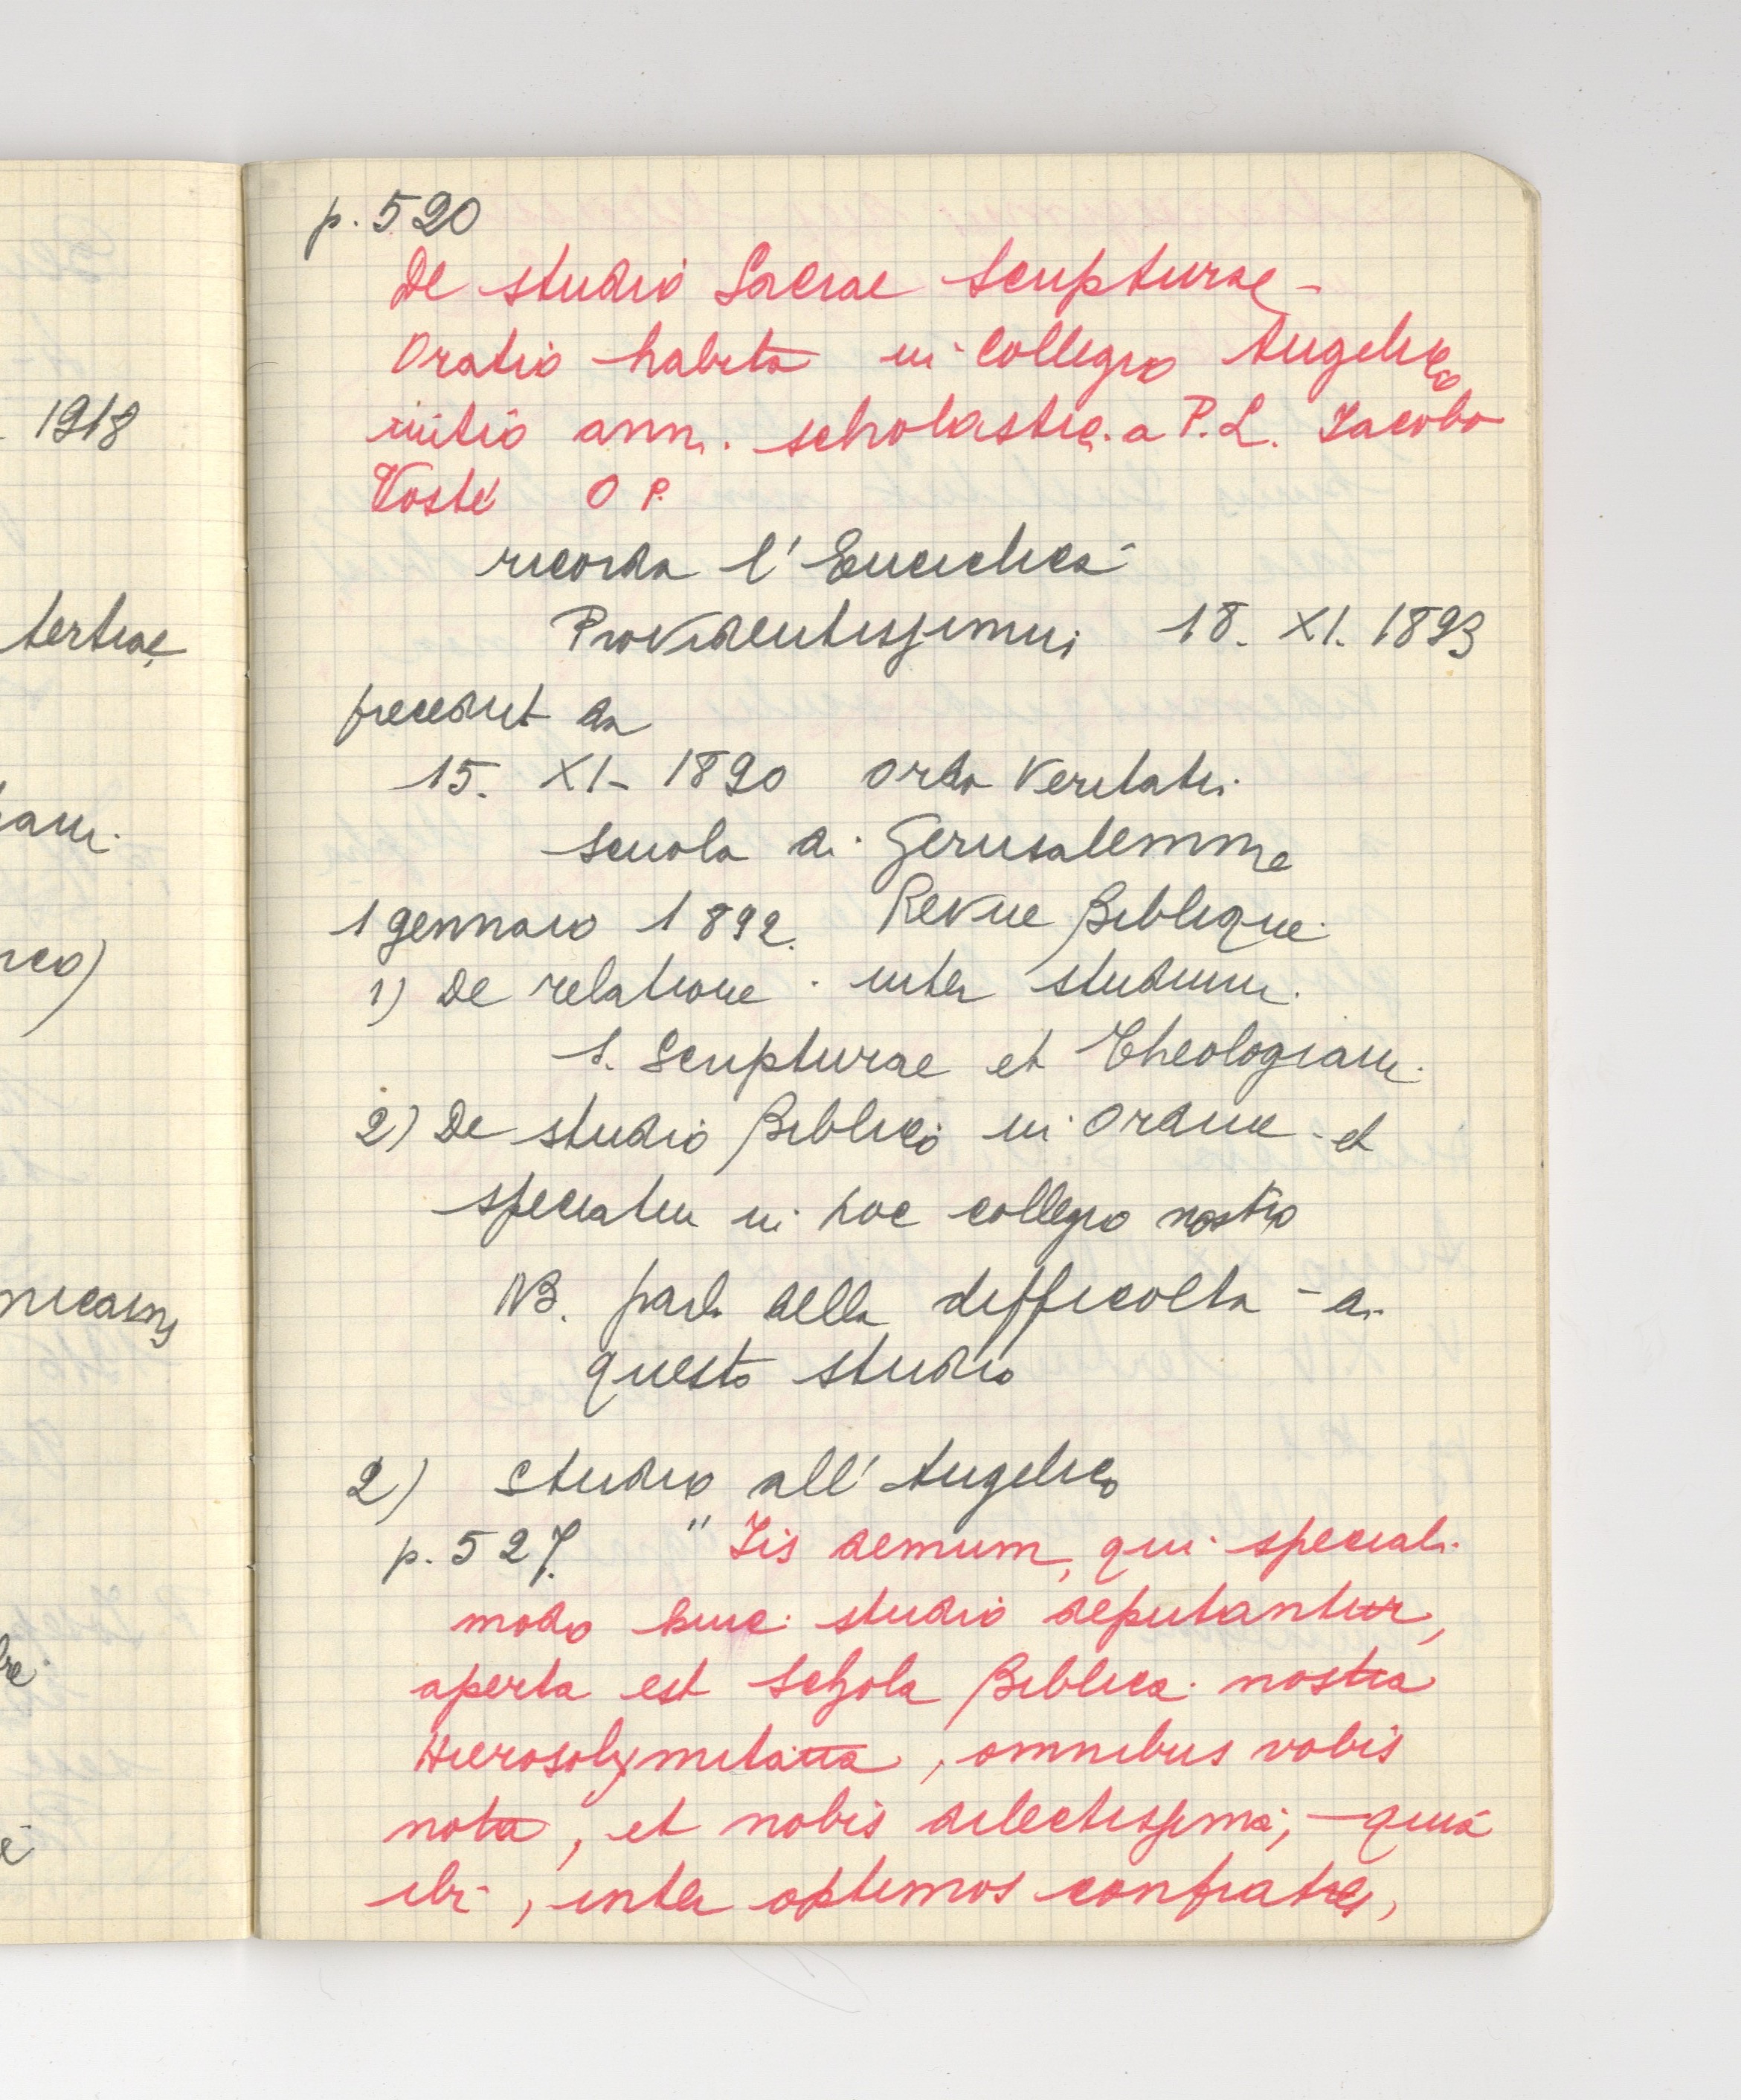 1918
tertiae
p. 520
De studio Sacrae Scripturae -
Oratio habita in Collegio Angelico
initio ann. scholastic. a P. L. Jacobo
Vosté O P.
ricorda l'Enciclica
Providentissimus 18. XI. 1893
preceduta da
15. XI - 1890 ordo Veritatis
scuola di Gerusalemme
1 gennaio 1892. Revue Biblique
1) De relatione inter studium
S. Scripturae et Theologiam
2) De studio Biblico in Ordine et
speciatim in hoc collegio nostro
NB. parla della difficolta - di
questo studio
2) Studio all'Angelico
p. 527. " Iis demum, qui speciali
modo huic studio deputantur,
aperta est Schola Biblica nostra
Hierosolymitana, omnibus vobis
nota, et nobis dilectissima; - quia
ibi, inter optimos confratres,